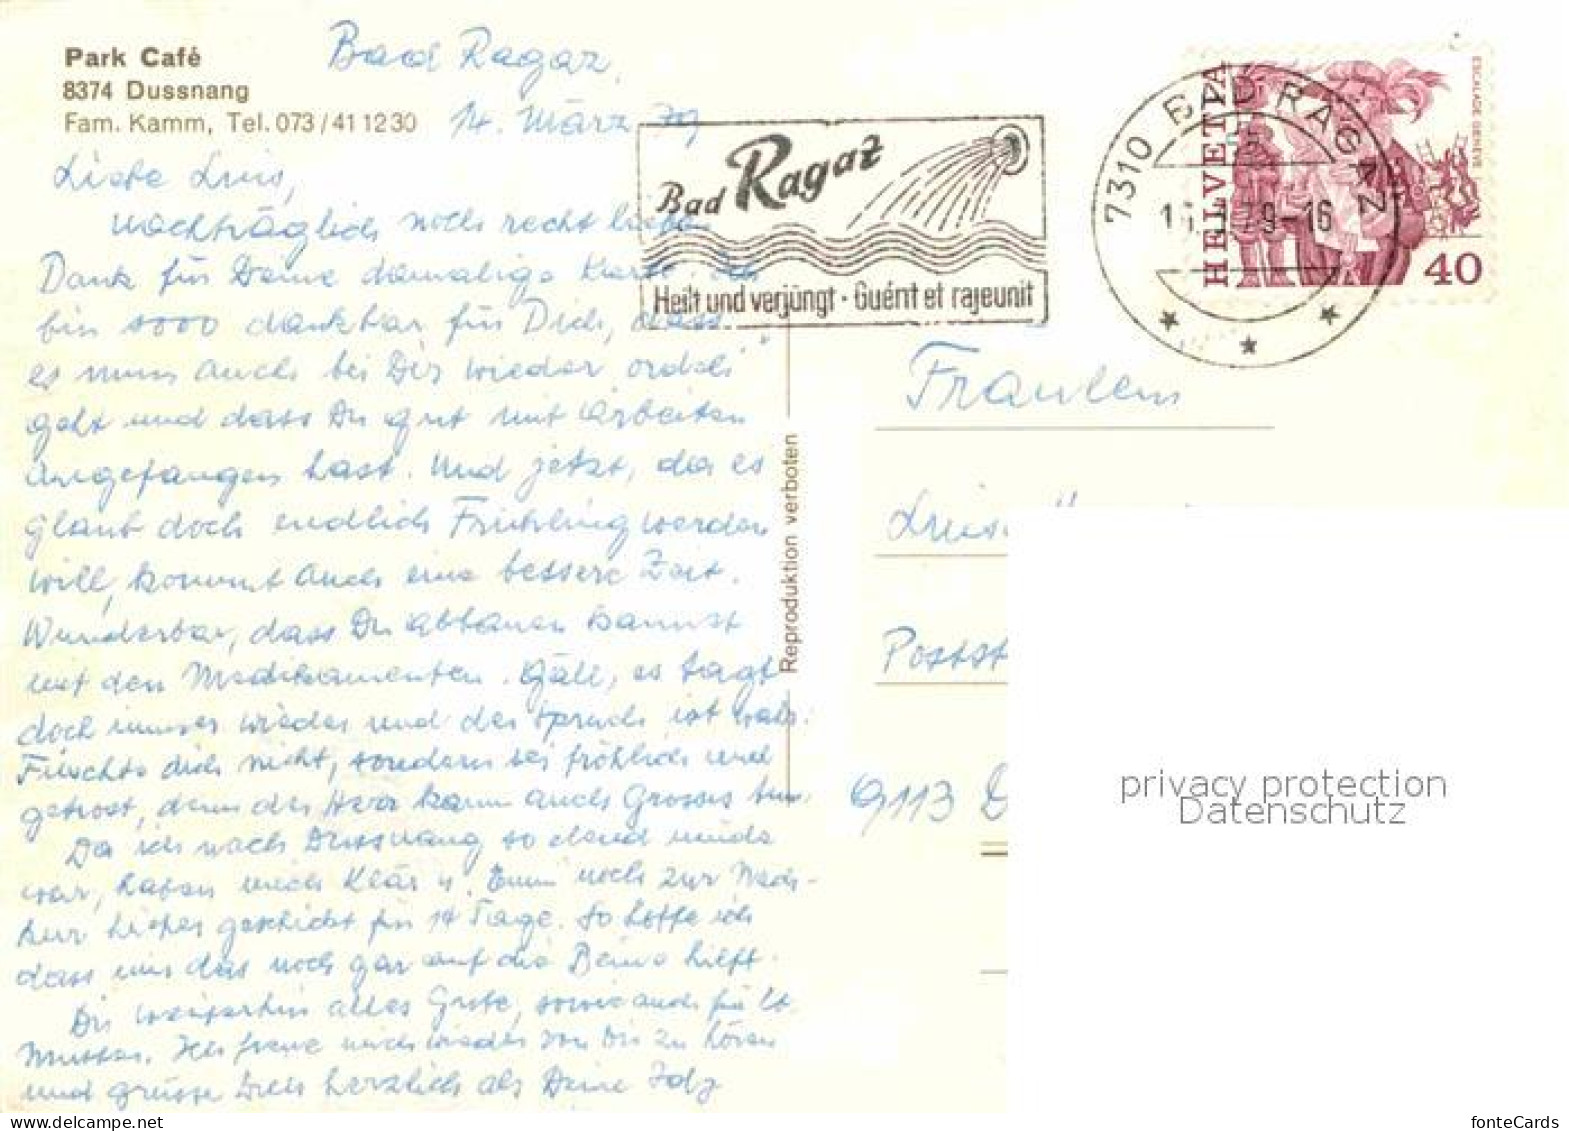 Park Café
8374 Dussnang
Fam. Kamm, Tel. 073/41 12 30
Bad Ragaz,
14. März 79
Liebe Luis,
nachträglich noch recht lieben
Dank für Deine damalige Karte. Ich
bin sooo dankbar für Dich, dass
es nun auch bei Dir wieder „ordeli"
geht und dass Du gut mit arbeiten
angefangen hast. Und jetzt, da es
glaub doch endlich Frühling werden
will, kommt auch eine bessere Zeit.
Wunderbar, dass Du abbauen kannst
mit den Medikamenten. Gäll, es tagt
doch immer wieder und der Spruch ist wahr:
Fürchte dich nicht, sondern sei fröhlich und
getrost, denn der Herr kann auch Grosses tun.
Da ich nach Dussnang so elend müde
war, haben mich Klär u. noch zur Nach-
kur hieher geschickt für 14 Tage. So hoffe ich
dass mir das noch gar auf die Beine hilft.
Dir weiterhin alles Gute, sowie auch für lb.
Mutter. Ich freue mich wieder von Dir zu hören
und grüsse Dich herzlich als Deine Idy
Bad Ragaz
Heilt und verjüngt · Guérit et rajeunit
7310 BAD RAGAZ
79-16
HELVETIA
ESCALADE GENÈVE
40
Reproduktion verboten
Fräulein
Luis
Postst
9113 D
privacy protection
Datenschutz
fonteCards
www.delcampe.net